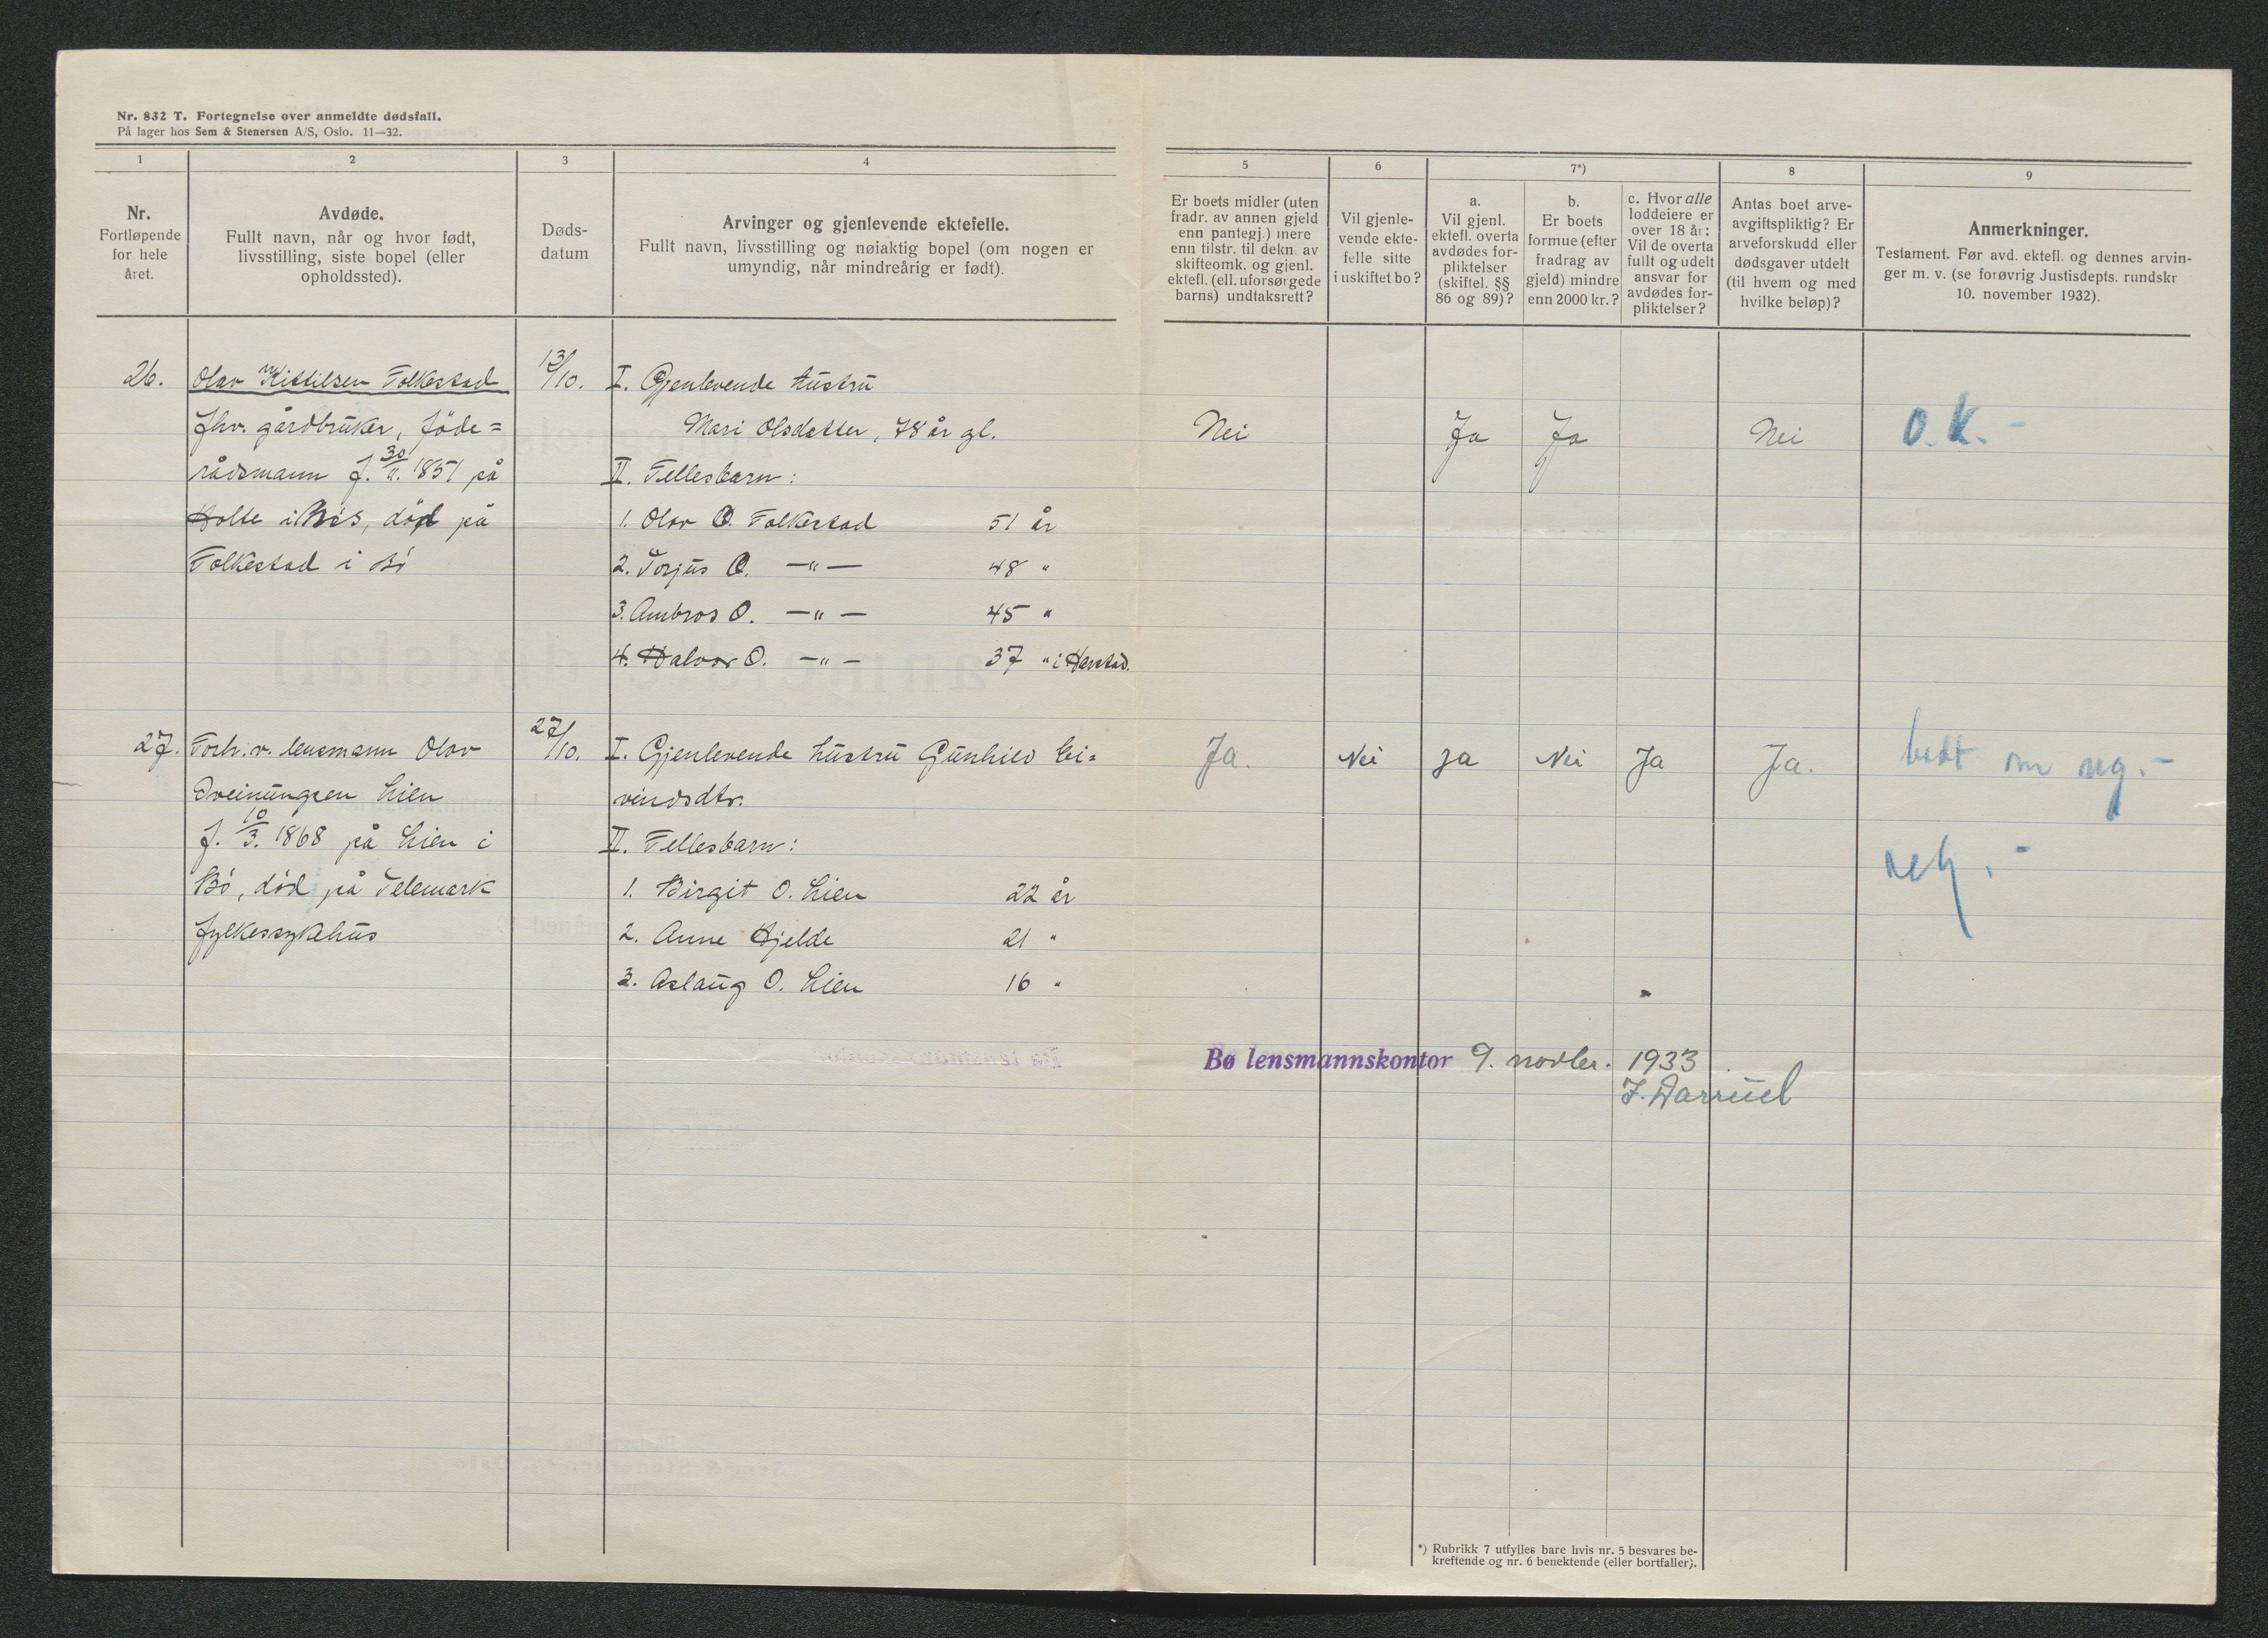 Nr. 832 T. Fortegnelse over anmeldte dødsfall.
På lager hos Sem & Stenersen A/S, Oslo. 11—32.
1
2
3
4
5
6
7*)
8
9
Nr.
Fortløpende
for hele
året.
Avdøde.
Fullt navn, når og hvor født,
livsstilling, siste bopel (eller
opholdssted).
Døds-
datum
Arvinger og gjenlevende ektefelle.
Fullt navn, livsstilling og nøiaktig bopel (om nogen er
umyndig, når mindreårig er født).
Er boets midler (uten
fradr. av annen gjeld
enn pantegj.) mere
enn tilstr. til dekn. av
skifteomk. og gjenl.
ektefl. (ell. uforsørgede
barns) undtaksrett?
Vil gjenle-
vende ekte-
felle sitte
i uskiftet bo?
a.
Vil gjenl.
ektefl. overta
avdødes for-
pliktelser
(skiftel. §§
86 og 89)?
b.
Er boets
formue (efter
fradrag av
gjeld) mindre
enn 2000 kr.?
c. Hvor alle
loddeiere er
over 18 år:
Vil de overta
fullt og udelt
ansvar for
avdødes for-
pliktelser?
Antas boet arve-
avgiftspliktig? Er
arveforskudd eller
dødsgaver utdelt
(til hvem og med
hvilke beløp)?
Anmerkninger.
Testament. Før avd. ektefl. og dennes arvin-
ger m. v. (se forøvrig Justisdepts. rundskr
10. november 1932).
26. Olav Kittilsen Folkestad 13/10. I. Gjenlevende hustru
fhv. gårdbruker, föde= Mari Olsdatter, 78 år gl. Nei Ja Ja Nei O.K.-
rådsmann f. 30/11. 1851 på II. Fellesbarn:
Holte i Bö, död på 1. Olav O. Folkestad 51 år
Folkestad i Bö 2. Torjus O. —"— 48 "
3. Ambros O. —"— 45 "
4. Halvor O. —"— 37 " i Harstad.
27. Forh.v. lensmann Olav 27/10. I. Gjenlevende hustru Gunhild Ei= Ja. Nei Ja Nei Ja Ja. bedt om reg.-
Sveinungsen Lien vindsdtr.
f. 10/3. 1868 på Lien i II. Fellesbarn: reg.-
Bö, död på Telemark 1. Birgit O. Lien 22 år
fylkessykehus 2. Anne Hjelde 21 "
3. Aslaug O. Lien 16 "
Bø lensmannskontor 9. novbr. 1933
*) Rubrikk 7 utfylles bare hvis nr. 5 besvares be-
kreftende og nr. 6 benektende (eller bortfaller).